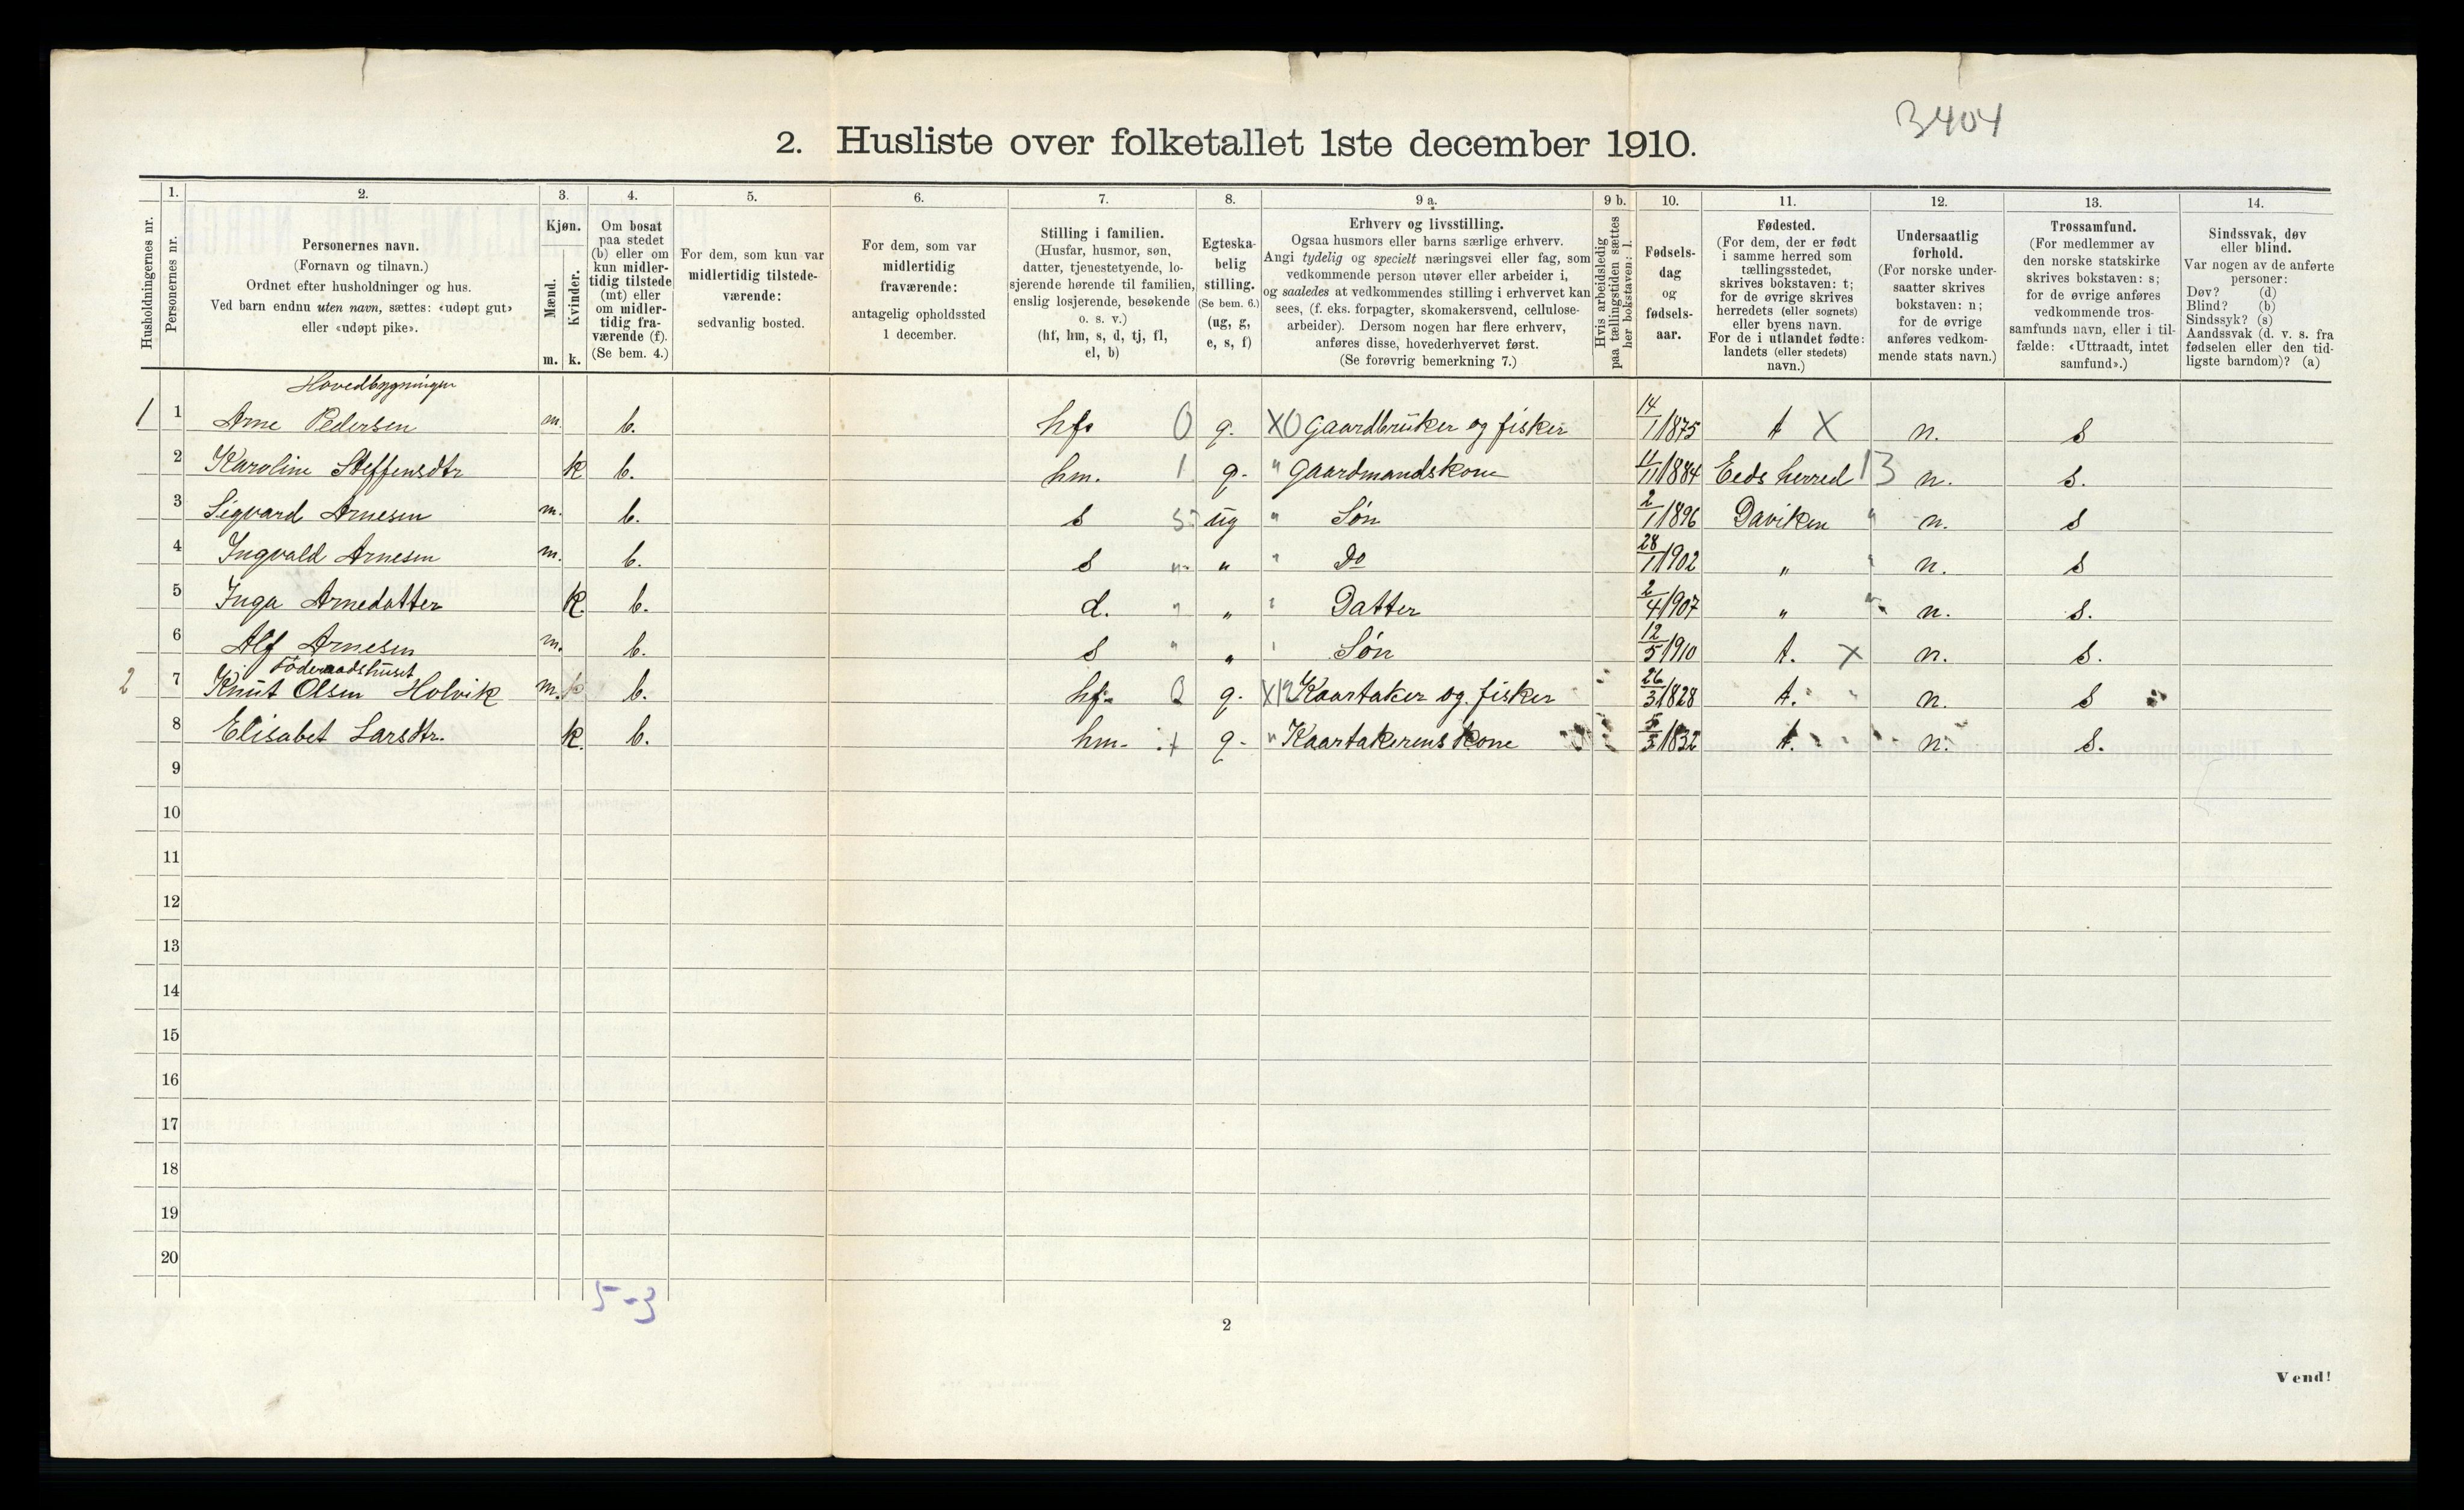 3404
2. Husliste over folketallet 1ste december 1910.
Husholdningernes nr.
1.
Personernes nr.
2.
Personernes navn.
(Fornavn og tilnavn.)
Ordnet efter husholdninger og hus.
Ved barn endnu uten navn, sættes: «udøpt gut»
eller «udøpt pike».
3.
Kjøn.
Mænd.
Kvinder.
m. k.
4.
Om bosat
paa stedet
(b) eller om
kun midler-
tidig tilstede
(mt) eller
om midler-
tidig fra-
værende (f).
(Se bem. 4.)
5.
For dem, som kun var
midlertidig tilstede-
værende:
sedvanlig bosted.
6.
For dem, som var
midlertidig
fraværende:
antagelig opholdssted
1 december.
7.
Stilling i familien.
(Husfar, husmor, søn,
datter, tjenestetyende, lo-
sjerende hørende til familien,
enslig losjerende, besøkende
o. s. v.)
(hf, hm, s, d, tj, fl,
el, b)
8.
Egteska-
belig
stilling.
(Se bem. 6.)
(ug, g,
e, s, f)
9 a.
Erhverv og livsstilling.
Ogsaa husmors eller barns særlige erhverv.
Angi tydelig og specielt næringsvei eller fag, som
vedkommende person utøver eller arbeider i,
og saaledes at vedkommendes stilling i erhvervet kan
sees, (f. eks. forpagter, skomakersvend, cellulose-
arbeider). Dersom nogen har flere erhverv,
anføres disse, hovederhvervet først.
(Se forøvrig bemerkning 7.)
9 b.
Hvis arbeidsledig
paa tællingstiden sættes
her bokstaven: l.
10.
Fødsels-
dag
og
fødsels-
aar.
11.
Fødested.
(For dem, der er født
i samme herred som
tællingsstedet,
skrives bokstaven: t;
for de øvrige skrives
herredets (eller sognets)
eller byens navn.
For de i utlandet fødte:
landets (eller stedets)
navn.)
12.
Undersaatlig
forhold.
(For norske under-
saatter skrives
bokstaven: n;
for de øvrige
anføres vedkom-
mende stats navn.)
13.
Trossamfund.
(For medlemmer av
den norske statskirke
skrives bokstaven: s;
for de øvrige anføres
vedkommende tros-
samfunds navn, eller i til-
fælde: «Uttraadt, intet
samfund».)
14.
Sindssvak, døv
eller blind.
Var nogen av de anførte
personer:
Døv? (d)
Blind? (b)
Sindssyk? (s)
Aandssvak (d. v. s. fra
fødselen eller den tid-
ligste barndom)? (a)
Hovedbygningen
1 1 Arne Pedersen m. b. hf. 0 g. X0 Gaardbruker og fisker 14/1 1875 t X n. s
2 Karoline Steffensdtr k b. hm. 1 g. " Gaardmandskone 11/11 1884 Eeds herred 13 n. s.
3 Sigvard Arnesen m. b. s 5 ug " Søn 2/1 1896 Daviken " n. s
4 Ingvald Arnesen m. b. s " " " Do 28/1 1902 " " n. s
5 Inga Arnedatter k. b. d. " " " Datter 2/4 1907 " " n. s.
6 Alf Arnesen m. b. s " " " Søn 12/5 1910 t. X n. s.
Föderaadshuset
2 7 Knut Olsen Holvik m. b. hf. 0 g. X12 Kaartaker og fisker 26/3 1828 t. " n. s
8 Elisabet Larsdtr. k. b. hm. 1 g. " Kaartakerens kone 5/3 1832 t. n. s.
9
10
11
12
13
14
15
16
17
18
19
20
5-3
2
Vend!